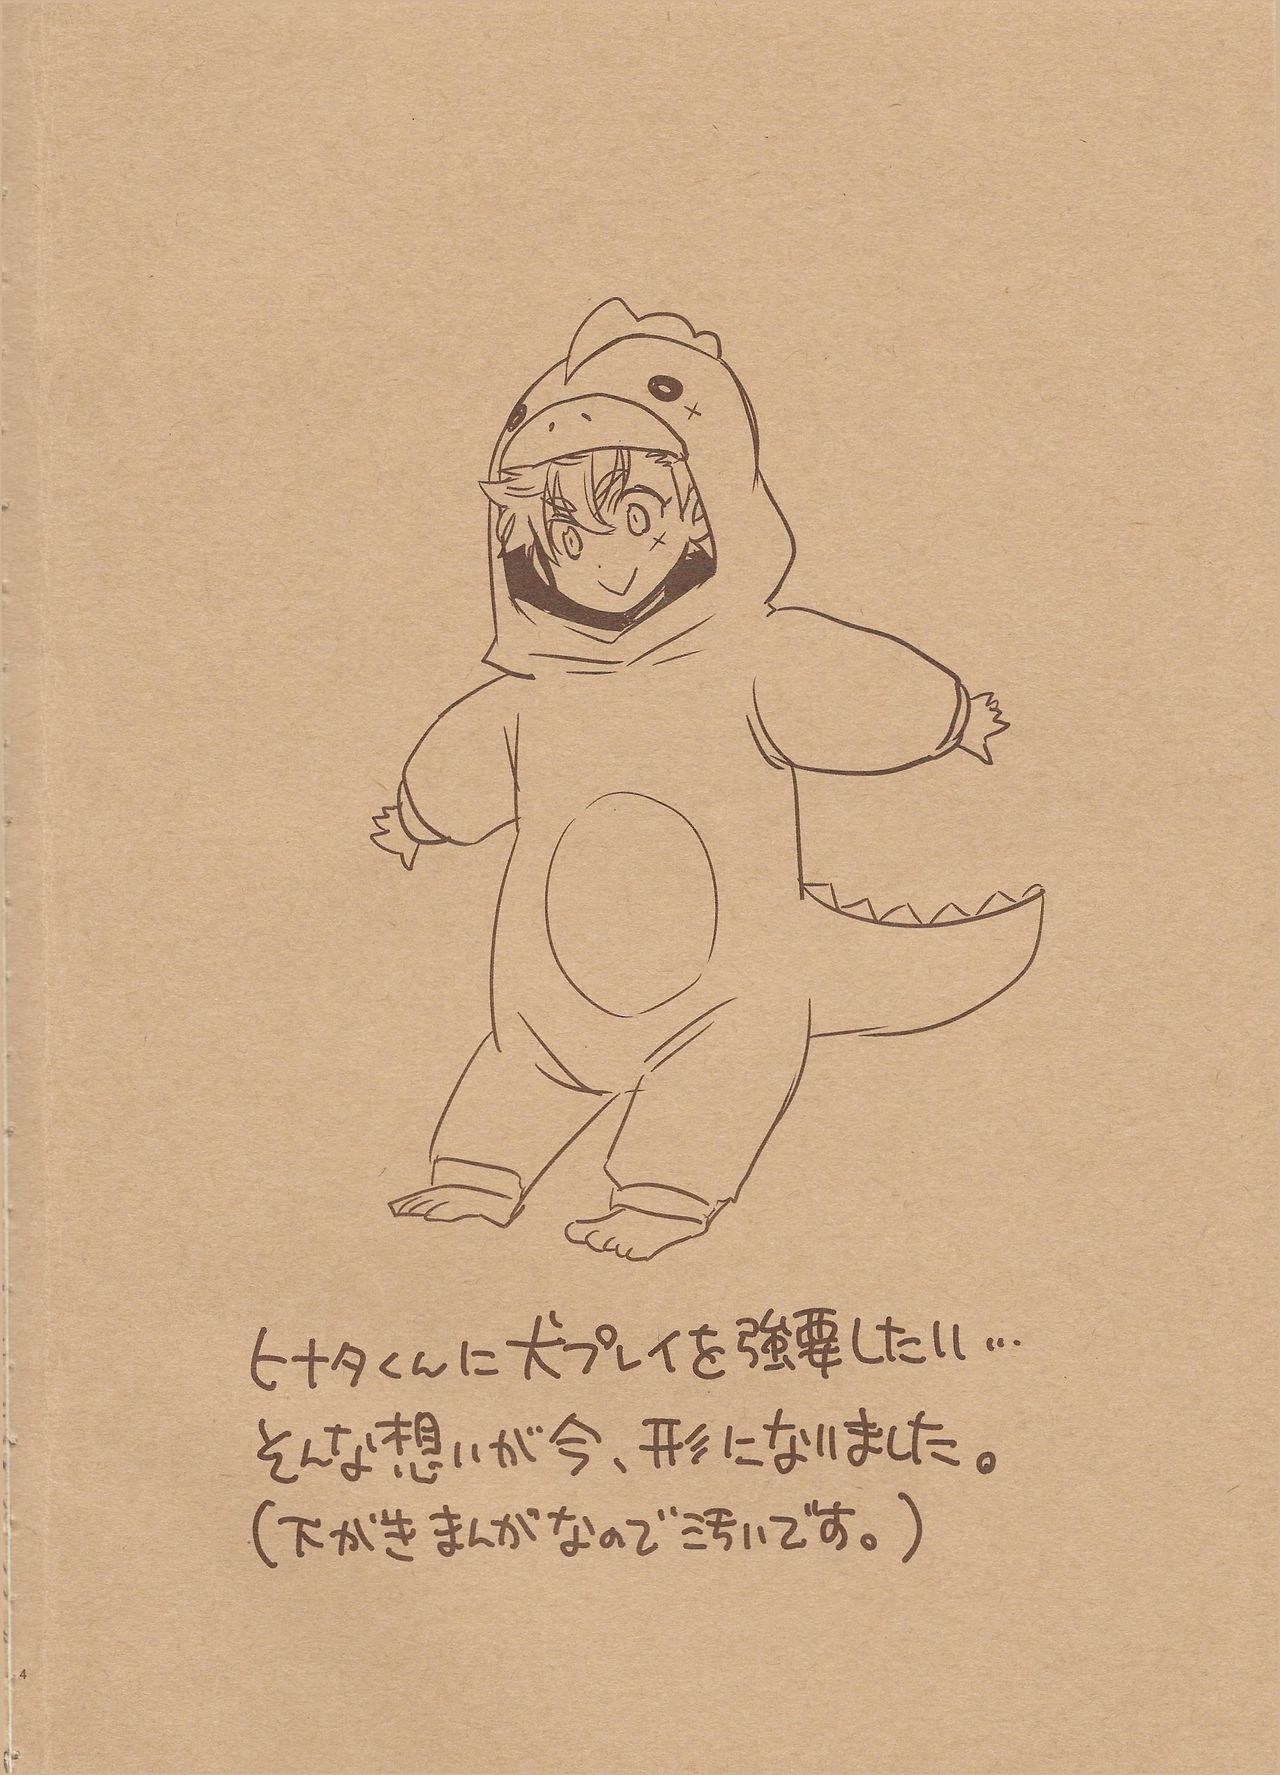 ヒナタくんに犬プレイを強要したい…
そんな想いが今、形になりました。
（下がきまんがなので汚いです。）
4